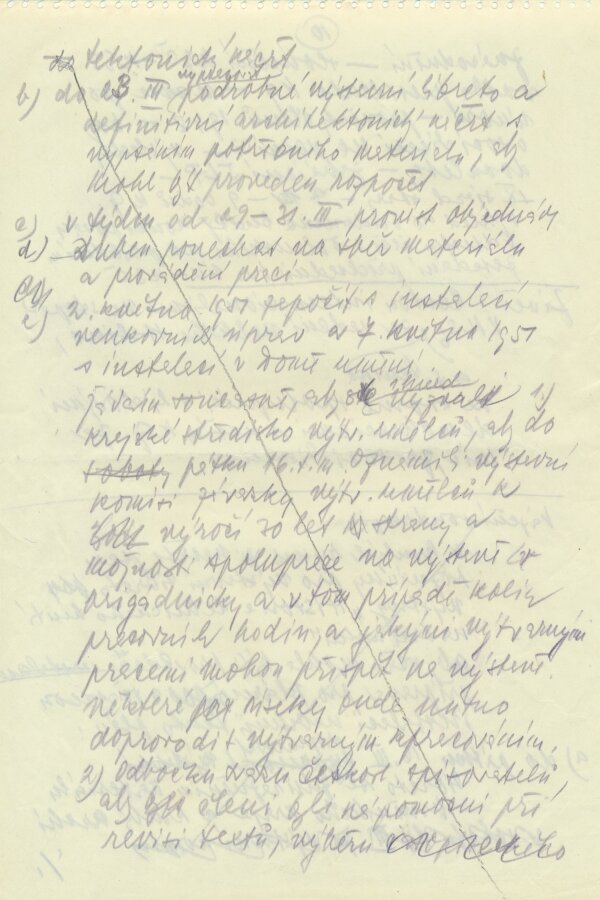 tektonický náčrt
b) do 23. III vypracovat podrobné výstavní libreto a
definitivní architektonický náčrt s
vypsáním potřebného materiálu, aby
mohl být proveden rozpočet
c) v týdnu od 29–31. III provést objednávky
d) Duben ponechat na sběr materiálu
a provádění prací
e) 2. května 1951 započít s instalací
venkovních úprav a 7. května 1951
s instalací v Domě umění.
Žádám současně, aby ihned 1)
krajské středisko výtv. umělců, aby do
soboty pátku 16. t. m. oznámili výstavní
komisi závazky výtv. umělců k
výročí 30 let strany a
možnosti spolupráce na výstavě
brigádnicky, a v tom případě kolik
pracovních hodin, a jakými výtvarnými
pracemi mohou přispět na výstavě.
Některé úseky bude nutno
doprovodit výtvarným zpracováním.
2) Odbočku svazu českosl. spisovatelů,
aby její členi byli nápomocni při
revisi textů, výběru